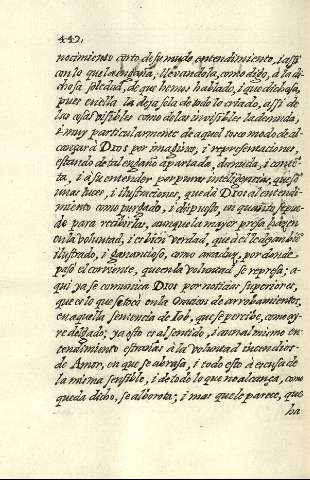 442.
nocimiento corto, de su mudo entendimiento, i assi
con lo que la engaña; llevandola, como digo, à la di-
chosa soledad, de que hemos hablado, i que dichosa,
pues en ella la deja sola de todo lo criado, assi de
las cosas visibles como de las invisibles la desnuda,
i muy particularmente de aquel tosco modo de al-
cançar à Dios por imagines, i representaciones,
estando de tal engaño apartada, desnuda, i conte-
ta, i à su entender por puras inteligencias, que son
unas luces, i ilustraciones, que dà Dios al entendi-
miento como purgado, i dispuesto, en quanto se pue-
de para recibirlas, aunque la mayor presa hazen
en la voluntad, i es bien verdad, que à el le dejan bie
ilustrado, i ganancioso, como arcaduz, por donde
pasò el corriente, que en la voluntad se represa; a-
qui ya se comunica Dios por noticias superiores,
que es lo que se tocò en la Oracion de arrobamientos,
en aquella sentencia de Iob, que se percibe, como ay-
re delgado; ya esto es al sentido, i aun al mismo en-
tendimiento estrañas à la voluntad incendios
de Amor, en que se abrasa, i todo esto à escusa de
la misma sensible, i de todo lo que no alcança, como
queda dicho, se alborota; i mas que le parece, que
ha